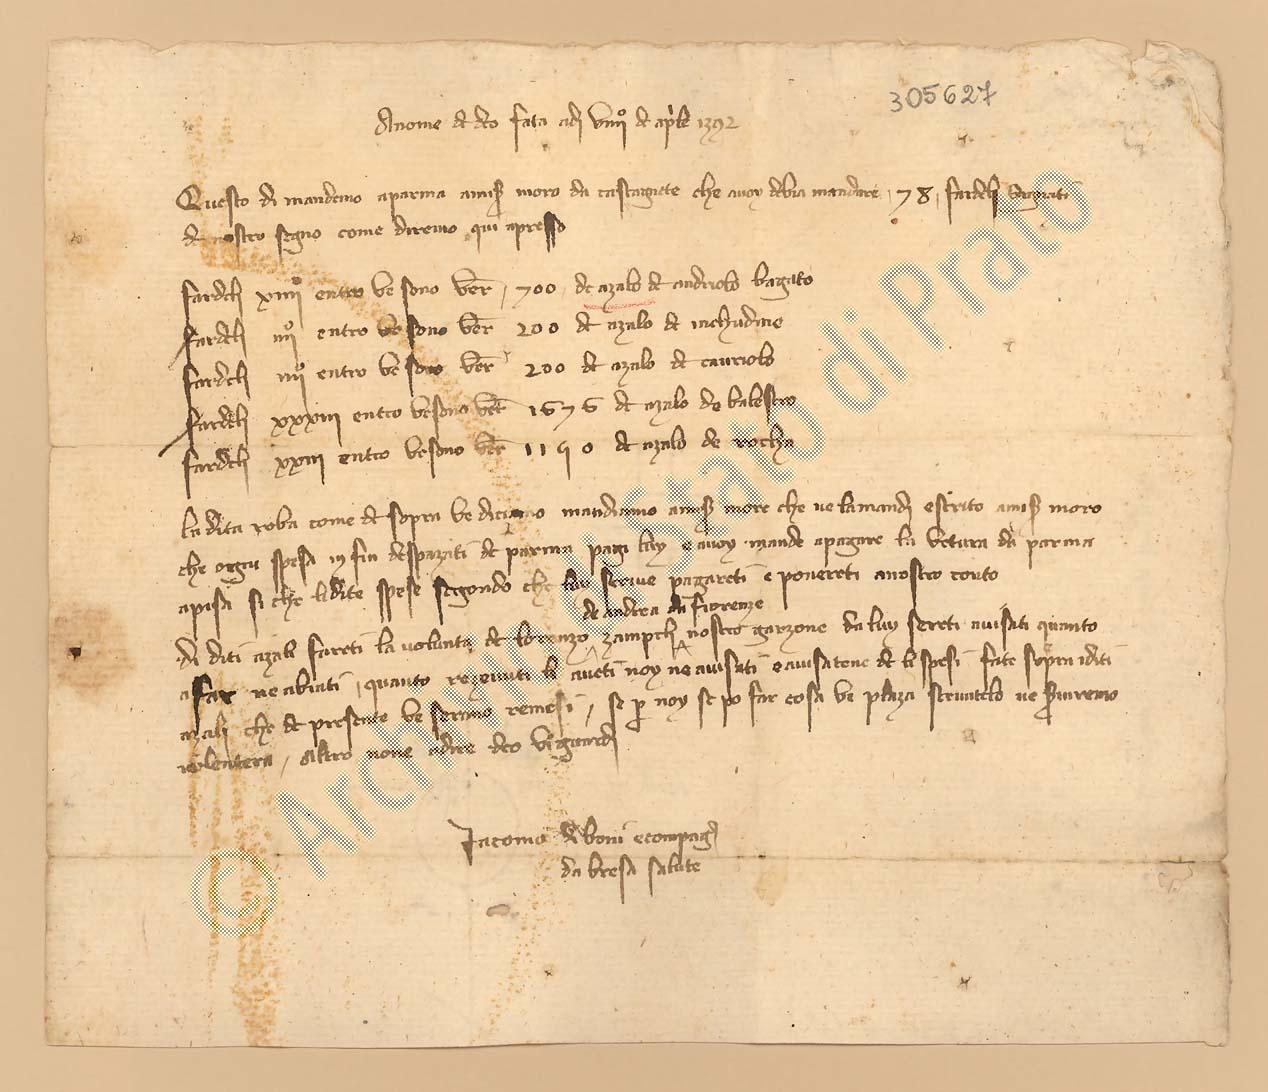 305627
A nome de dio fata adi VIIIIº de aprile 1392
Questo di mandemo a parma a mis moro da castagnete che a voy debia mandare 78 fardeli segnati
de nostro segno come diremo qui apresso
fardeli XIIIIº entro ve sono ver 700 de azalo de andriolo bagato
fardeli IIIIº entro ve sono ver 200 de azalo de inchudine
fardeli IIIIº entro ve sono ver 200 de azalo de cauriolo
fardeli XXXIII entro ve sono ver 1676 de azalo de balestro
fardeli XXIII entro ve sono ver 1190 de azalo de rocha
la dita roba come de sopra ve diciamo mandiamo a mis more che ve la mandi e scrito a mis moro
che ogni spesa in fin despazati de parma pagi luy e a voy mande a pagare la vetura da parma
a pisa si che le dite spese segondo che luy scrive pagareti e ponereti a nostro conto
de andrea da fiorenze
di diti azali fareti la volunta de lorenzo zampeli nostro garzone da luy sereti avisati quanto
a far ne abiati, quanto rezevuti le aveti noy ne avisati e avisatene de le spesi fate sopra i diti
azali che de presente ve serano remesi, se per noy se po far cosa ve plaza scrivatelo ve serviremo
volentera, altro non e a dire dio vi guardi
Jacomo di boni e compagni
da bresa salute
© Archivio di Stato di Prato